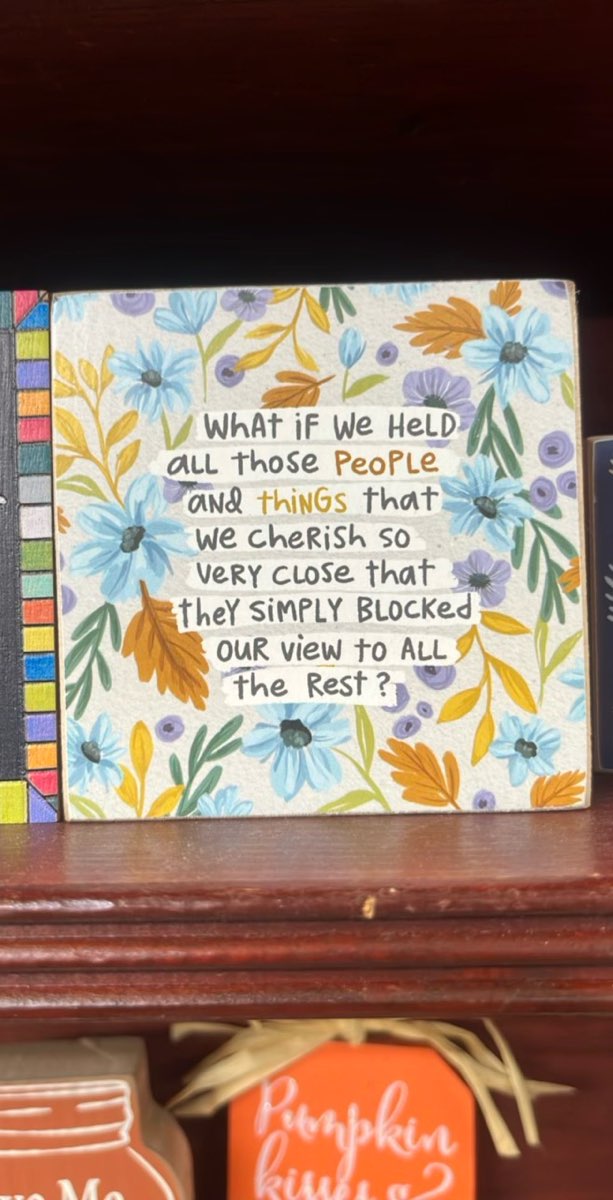 WHAT iF WE HELD
ALL those PEOPLE
AND thiNGS that
WE CHERISH SO
VERY CLOSE that
theY SiMPLY BLOCKED
OUR ViEW to ALL
the REST?
Pumpkin
Me